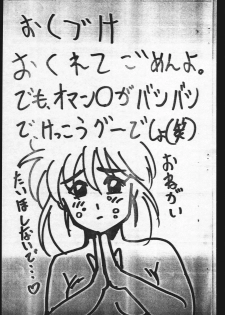 おくづけ
おくれてごめんよ。
でも、オマン〇がバンバン
でけっこうグーでしょ(笑)
おねがい
たいほしないで…♡